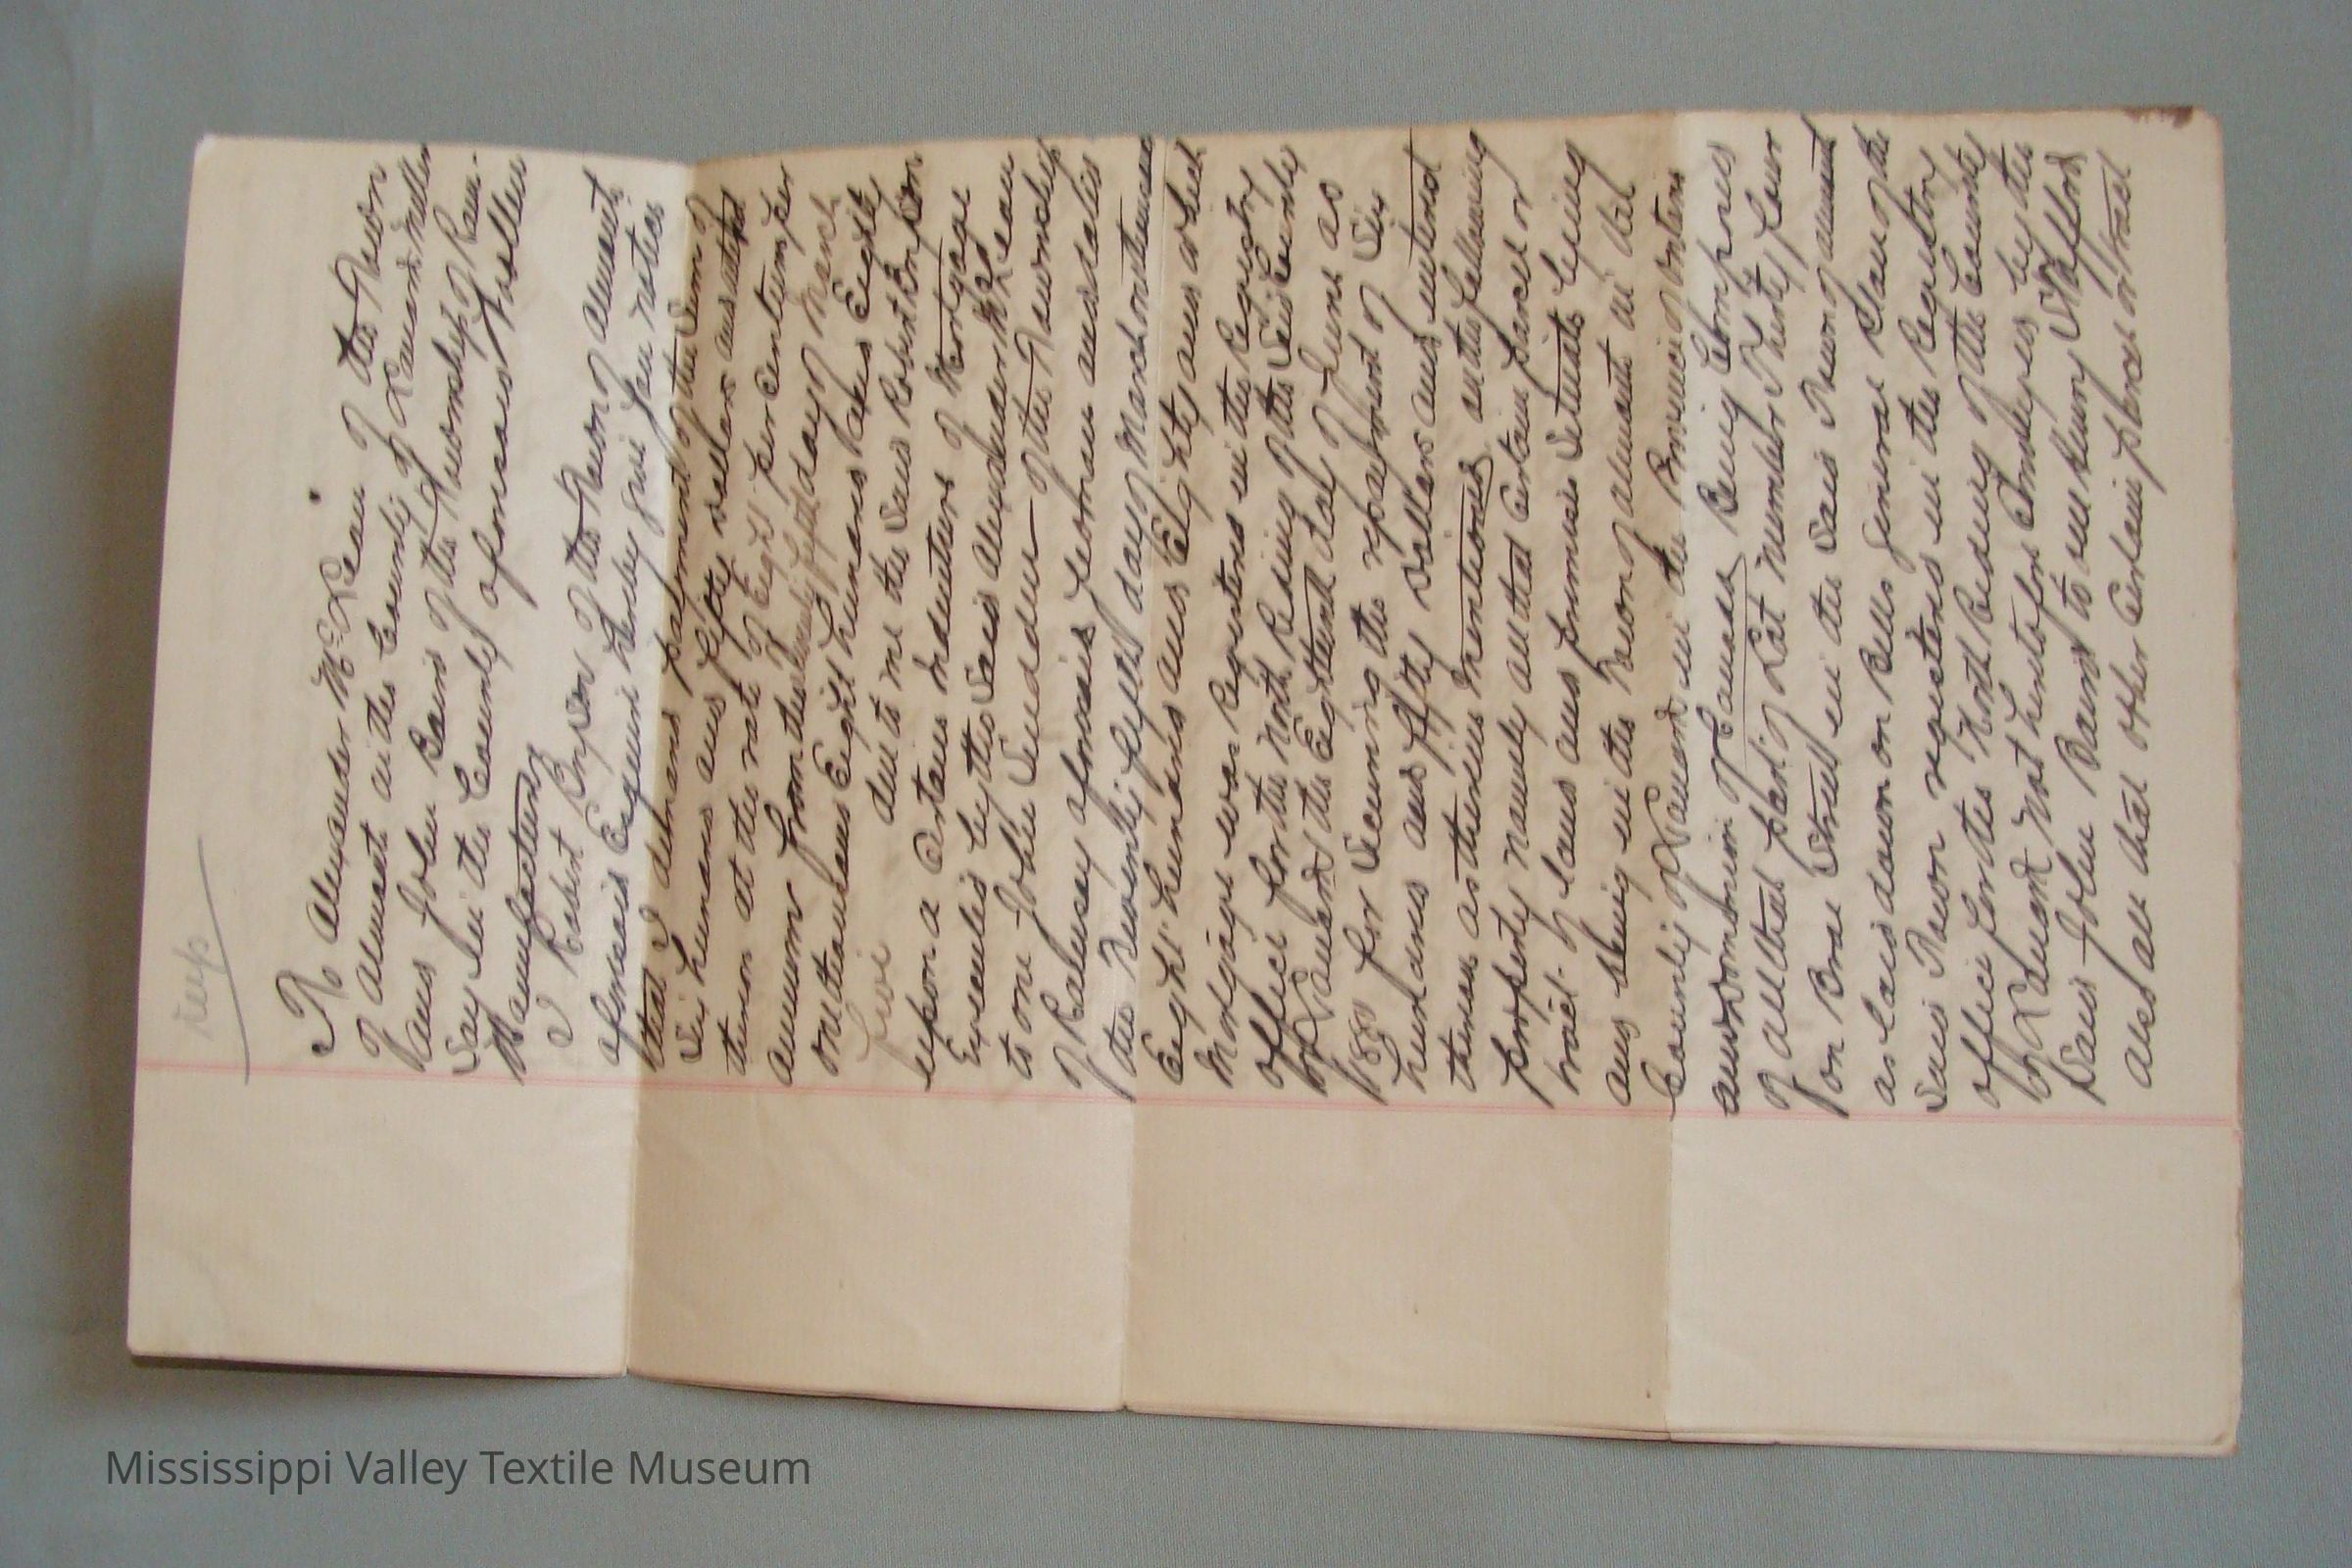 Keep
To Alexander McLean of the Town
of Almonte in the County of Lanark Miller
and John Baird of the Township of Ram-
say in the County aforesaid Woollen
Manufacturer
I Robert Simpson of the Town of Almonte
aforesaid Esquire hereby give you notice
that I demand payment of the Sum of
Six hundred and fifty dollars and interest
thereon at the rate of Eight per centum per
annum from the twenty fifth day of March
one thousand Eight hundred and Eighty
five due to me the said Robert Simpson
upon a certain Indenture of Mortgage
Executed by the said Alexander McLean
to one John Scudder of the Township
of Ramsay aforesaid Yeoman and dated
the Twenty fifth day of March one thousand
Eight hundred and Eighty and which
Mortgage was Registered in the Registry
office for the North Riding of the said County
of Lanark the Eighteenth day of June AD
1880 for securing the repayment of Six
hundred and fifty dollars and interest
thereon as therein mentioned on the following
property namely all that certain parcel or
tract of land and premises situate lying
and being in the Town of Almonte in the
County of Lanark in the Province of Ontario
and Dominion of Canada Being Composed
of all that part of Lot number Thirty four
on Brae Street in the said Town of Almonte
as laid down on Bells general Plan of the
said Town registered in the Registry
office for the North Riding of the County
of Lanark not heretofore Conveyed by the
said John Baird to one Henry Stafford
and all that other certain parcel or tract
Mississippi Valley Textile Museum